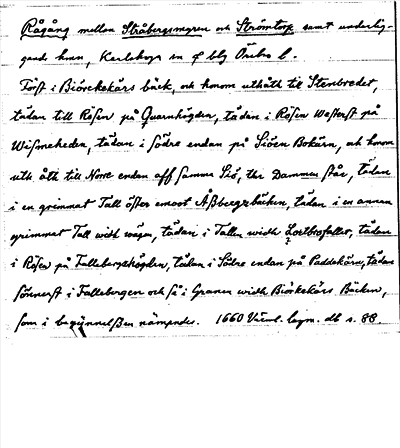 Rågång mellan Stråbergsmyren och Strömtorp samt underlig-
gande hmn, Karlskoga sn o blg Örebro l.
Först i Biörckekärs bäck, och honom uthåtht til Stenbredet,
tädan till Rösen på Quarnhögden, tädan i Rösen Westerst på
Wismeheden, tädan i södre endan på Siöen Bokärn, och honom
uth åth till Norre endan aff samma Siö, ther Dammen står, tädan
i en grimmat Tall öster emoot Åßbergzbäcken, tädan i en annan
grimmat Tall widh wägen, tädan i Tallen widh Lortbrofallet, tädan
i Rösen på Fallebergzhögden, tädan i Södre endan på Paddekärn, tädan
sönnerst i Fallebergen och så i Granen widh Biörkekärs Bäcken,
som i begynnelßen nämpndes. 1660 Värml. lagm. db s. 88.